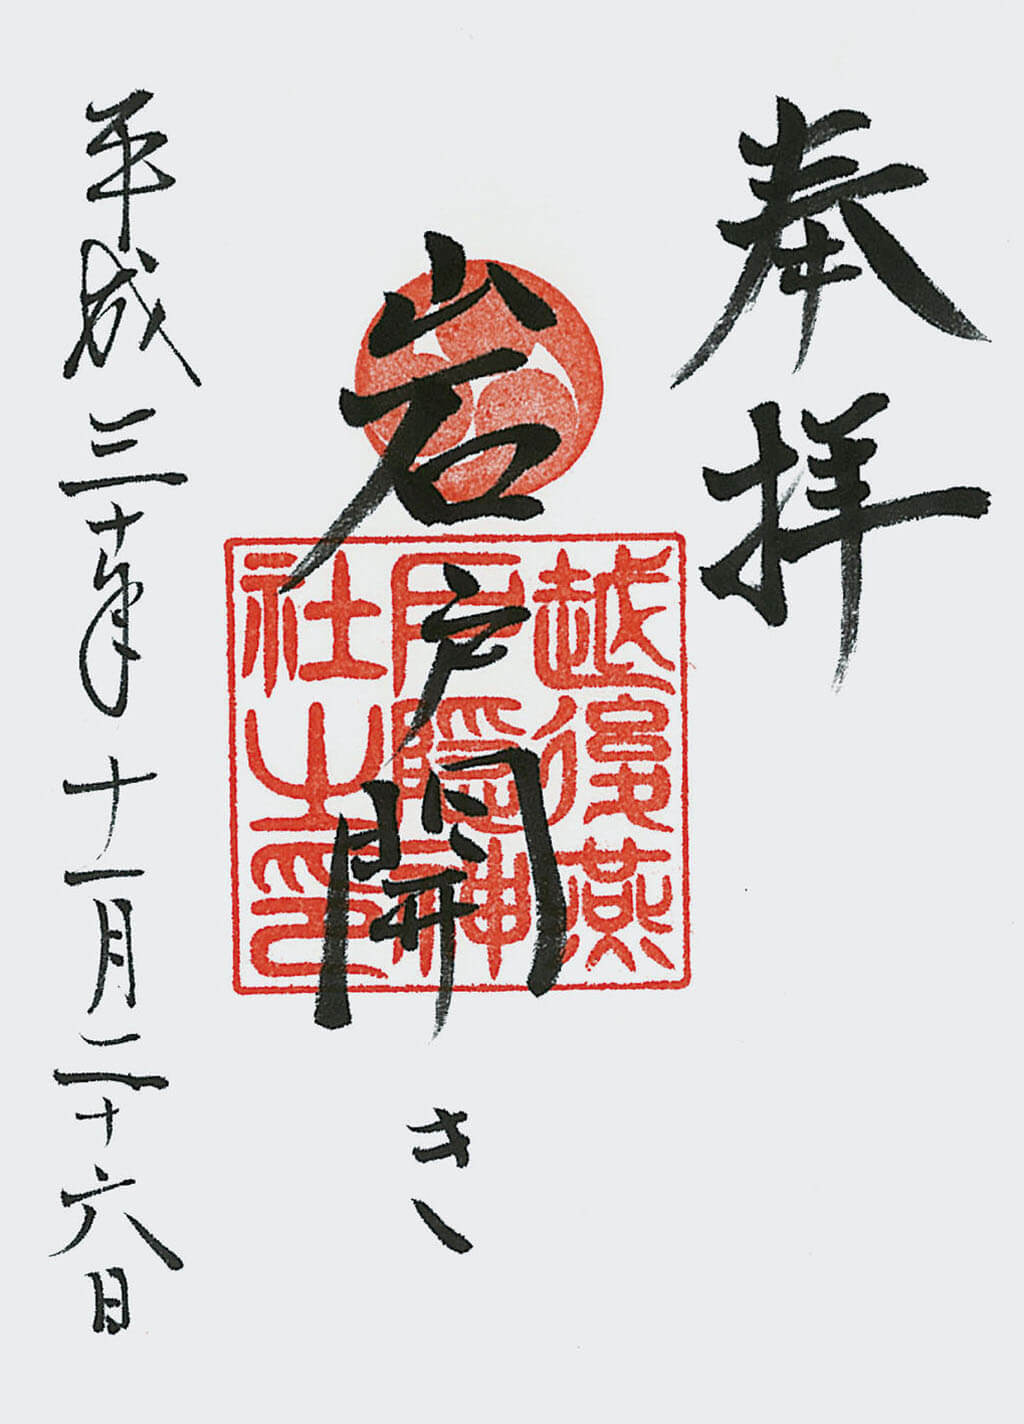 奉拝
岩戸開き
越後燕
戸隠神
社之印
平成三十年十一月二十六日